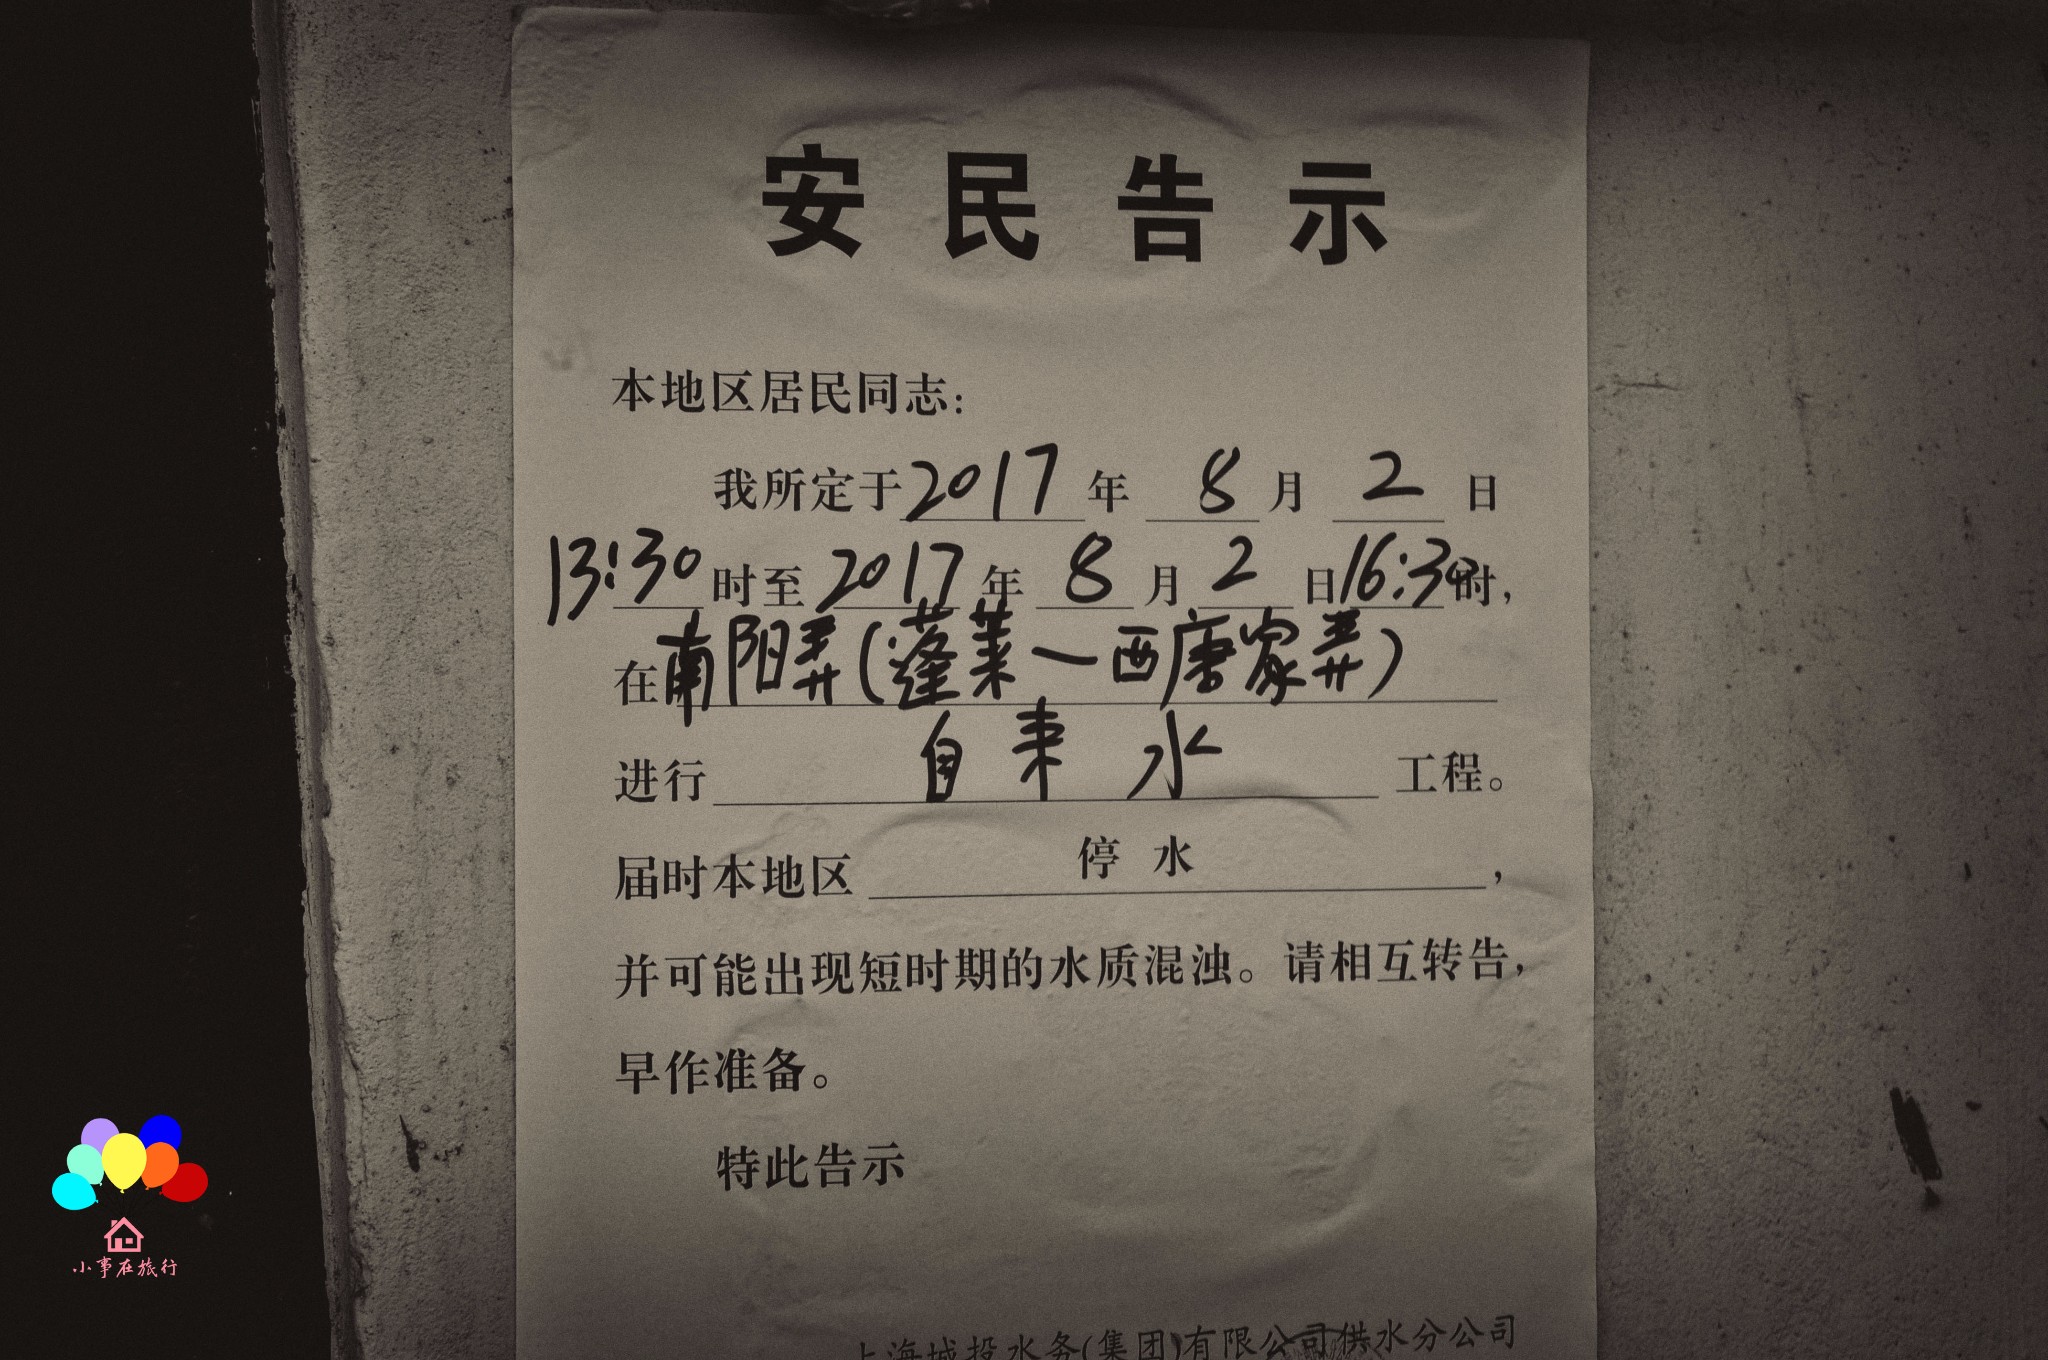 安民告示
本地区居民同志:
我所定于2017年8月2日
13:30时至2017年8月2日16:30时,
在南阳弄(蓬莱一西唐家弄)
进行自来水工程。
届时本地区停水,
并可能出现短时期的水质混浊。请相互转告,
早作准备。
特此告示
上海城投水务(集团)有限公司供水分公司
小事在旅行